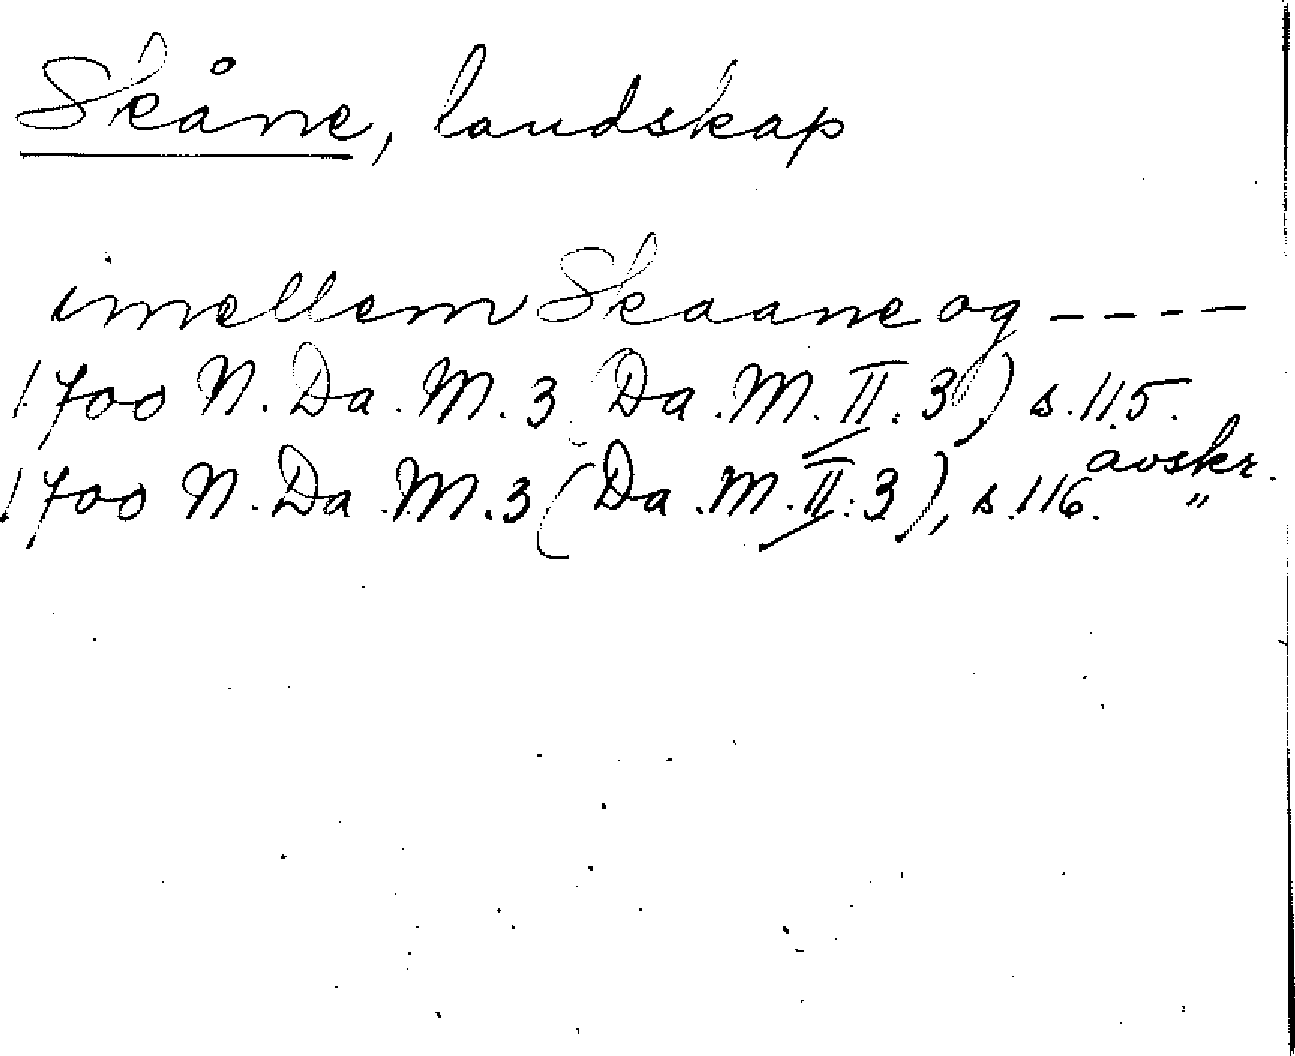 Skåne, landskap
imellem Skaane og ----
1700 N. Da. M. 3 (Da. M. II. 3) s. 115. avskr.
1700 N. Da. M. 3 (Da. M. II. 3), s. 116. "